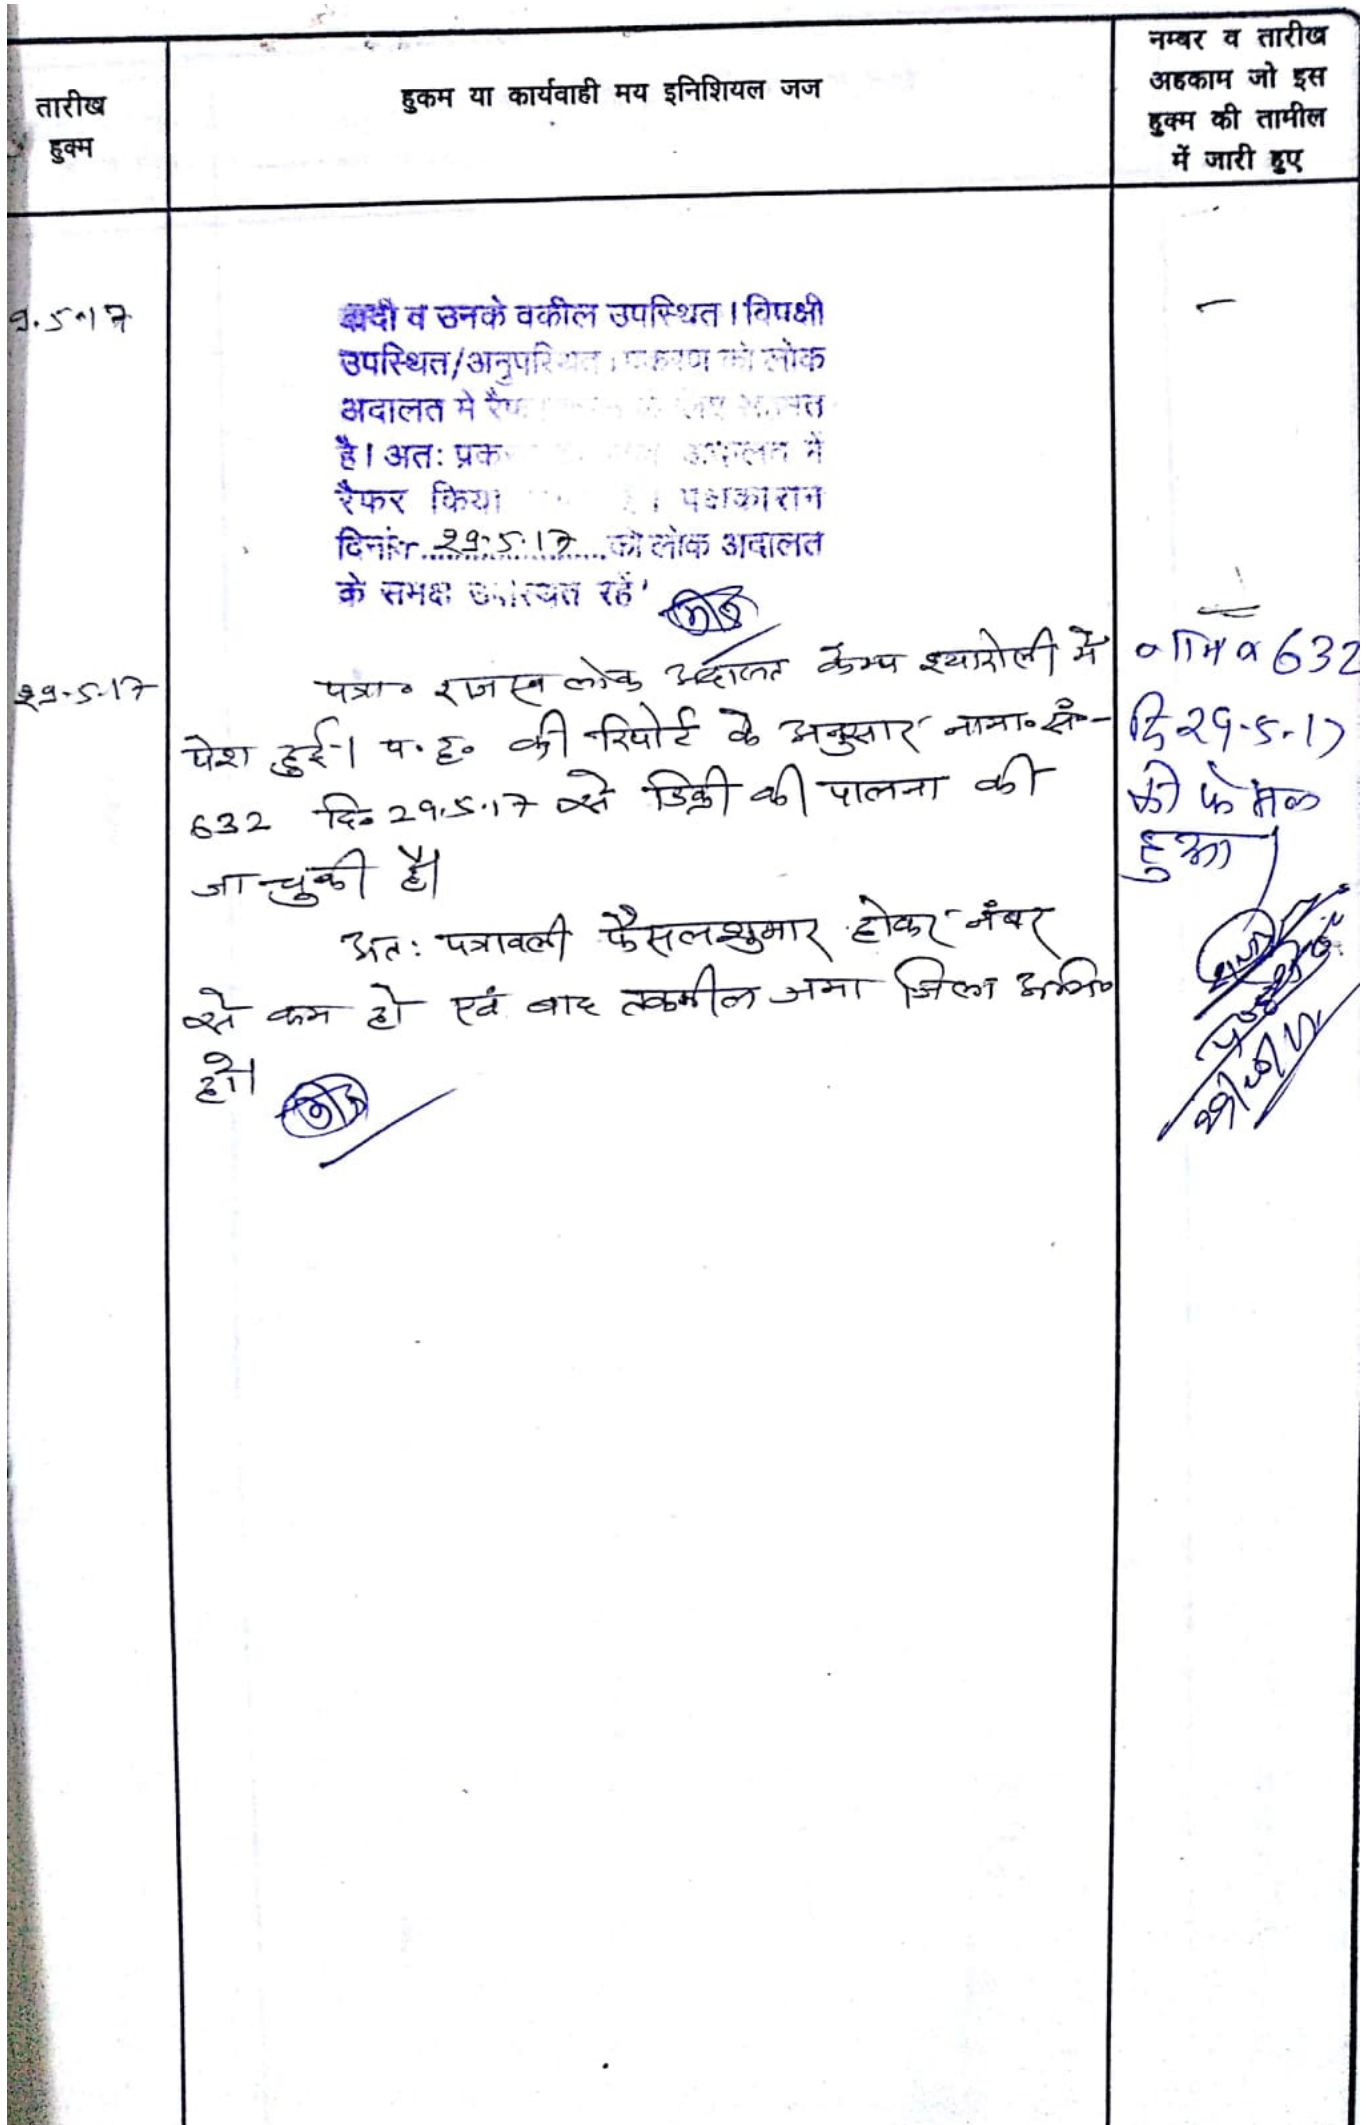 तारीख
हुक्म
हुकम या कार्यवाही मय इनिशियल जज
नम्बर व तारीख
अहकाम जो इस
हुक्म की तामील
में जारी हुए
9.5.17
वादी व उनके वकील उपस्थित। विपक्षी
उपस्थित/अनुपस्थित। प्रकरण को लोक
अदालत मे
है। अतः अदालत में
रैफर किया पक्षकारान
दिनांक 29.5.17 को लोक अदालत
के समक्ष उपस्थित रहें
29.5.17
पत्रा॰ राजस्व लोक अदालत केम्प श्यारोली में
पेश हुई। प.ह॰ की रिपोर्ट के अनुसार नामा॰ सं॰
632 दि॰ 29.5.17 से डिक्री की पालना की
जा चुकी है।
अतः पत्रावली फैसलशुमार होकर नंबर
से कम हो एवं बाद तकमील जमा जिला अभि॰
हो।
632
दि 29-5-17
को
हुआ